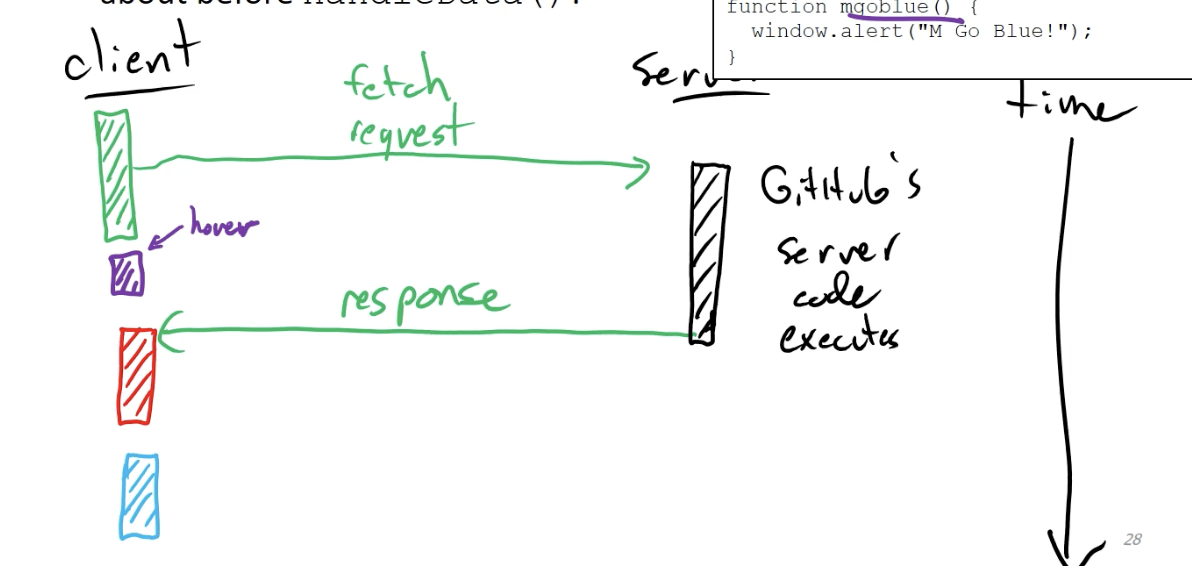 about before handleData()?
function mgoblue() {
window.alert("M Go Blue!");
}
client
server
time
fetch
request
GitHub's
server
code
executes
hover
response
28